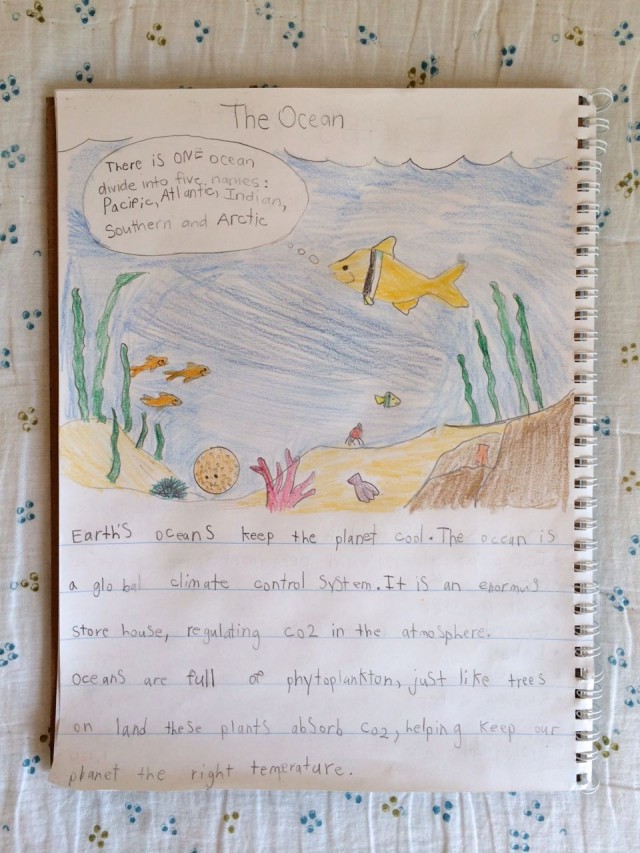 The Ocean
There is ONE ocean
divide into five names:
Pacific, Atlantic, Indian,
Southern and Arctic
Earth's oceans keep the planet cool. The ocean is
a global climate control system. It is an enormus
store house, regulating co2 in the atmosphere.
Oceans are full of phytoplankton, just like trees
on land these plants absorb co2, helping keep our
planet the right temperature.